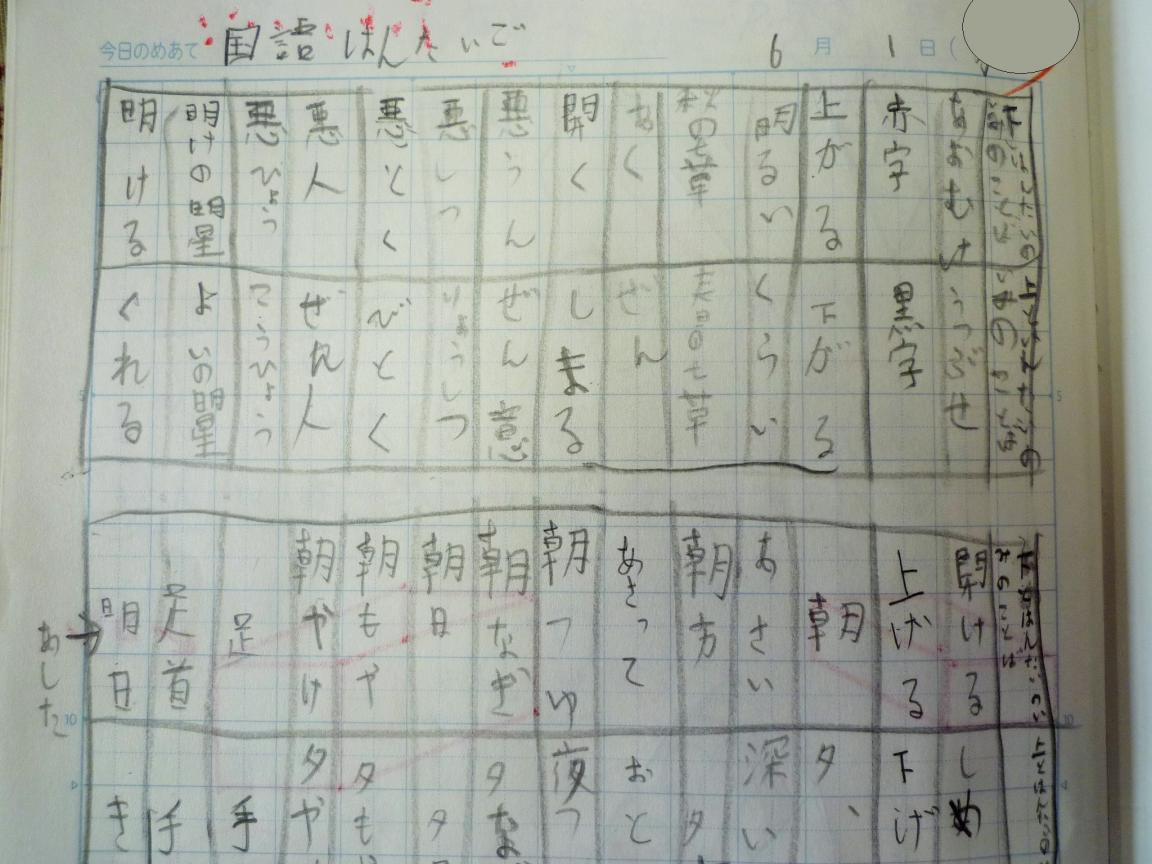 今日のめあて 国語 はんたいご 6月1日(
あおむけ うつぶせ
赤字 黒字
上がる 下がる
明るい くらい
秋の七草 春の七草
あく ぜん
開く しまる
悪うん ぜん
悪しつ りょうしつ
悪とく びとく
悪人 ぜん人
悪ひょう こうひょう
明けの明星 よいの明星
明ける くれる
開ける しめ
上げる 下げ
朝 夕
あさい 深い
朝方 夕
あさって おと
朝つゆ 夜つ
朝なぎ 夕な
朝日 夕
朝もや 夕も
朝やけ 夕や
足 手
足首 手
明日 き
あした
5
10
10